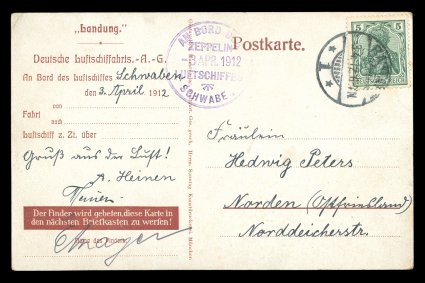 „Landung.“
Deutsche Luftschiffahrts.-A.-G.
An Bord des Luftschiffes Schwaben
den 3. April 1912
von
Fahrt
nach
Luftschiff z. Zt. über
Gruß aus der Luft!
A. Heinen
Der Finder wird gebeten, diese Karte in
den nächsten Briefkasten zu werfen!
Name des Finders
AN BORD DES
ZEPPELIN
3 APR. 1912
LUFTSCHIFFES
SCHWABEN
Postkarte.
5 5
Fräulein
Hedwig Peters
Norden (Ostfriesland)
Norddeicherstr.